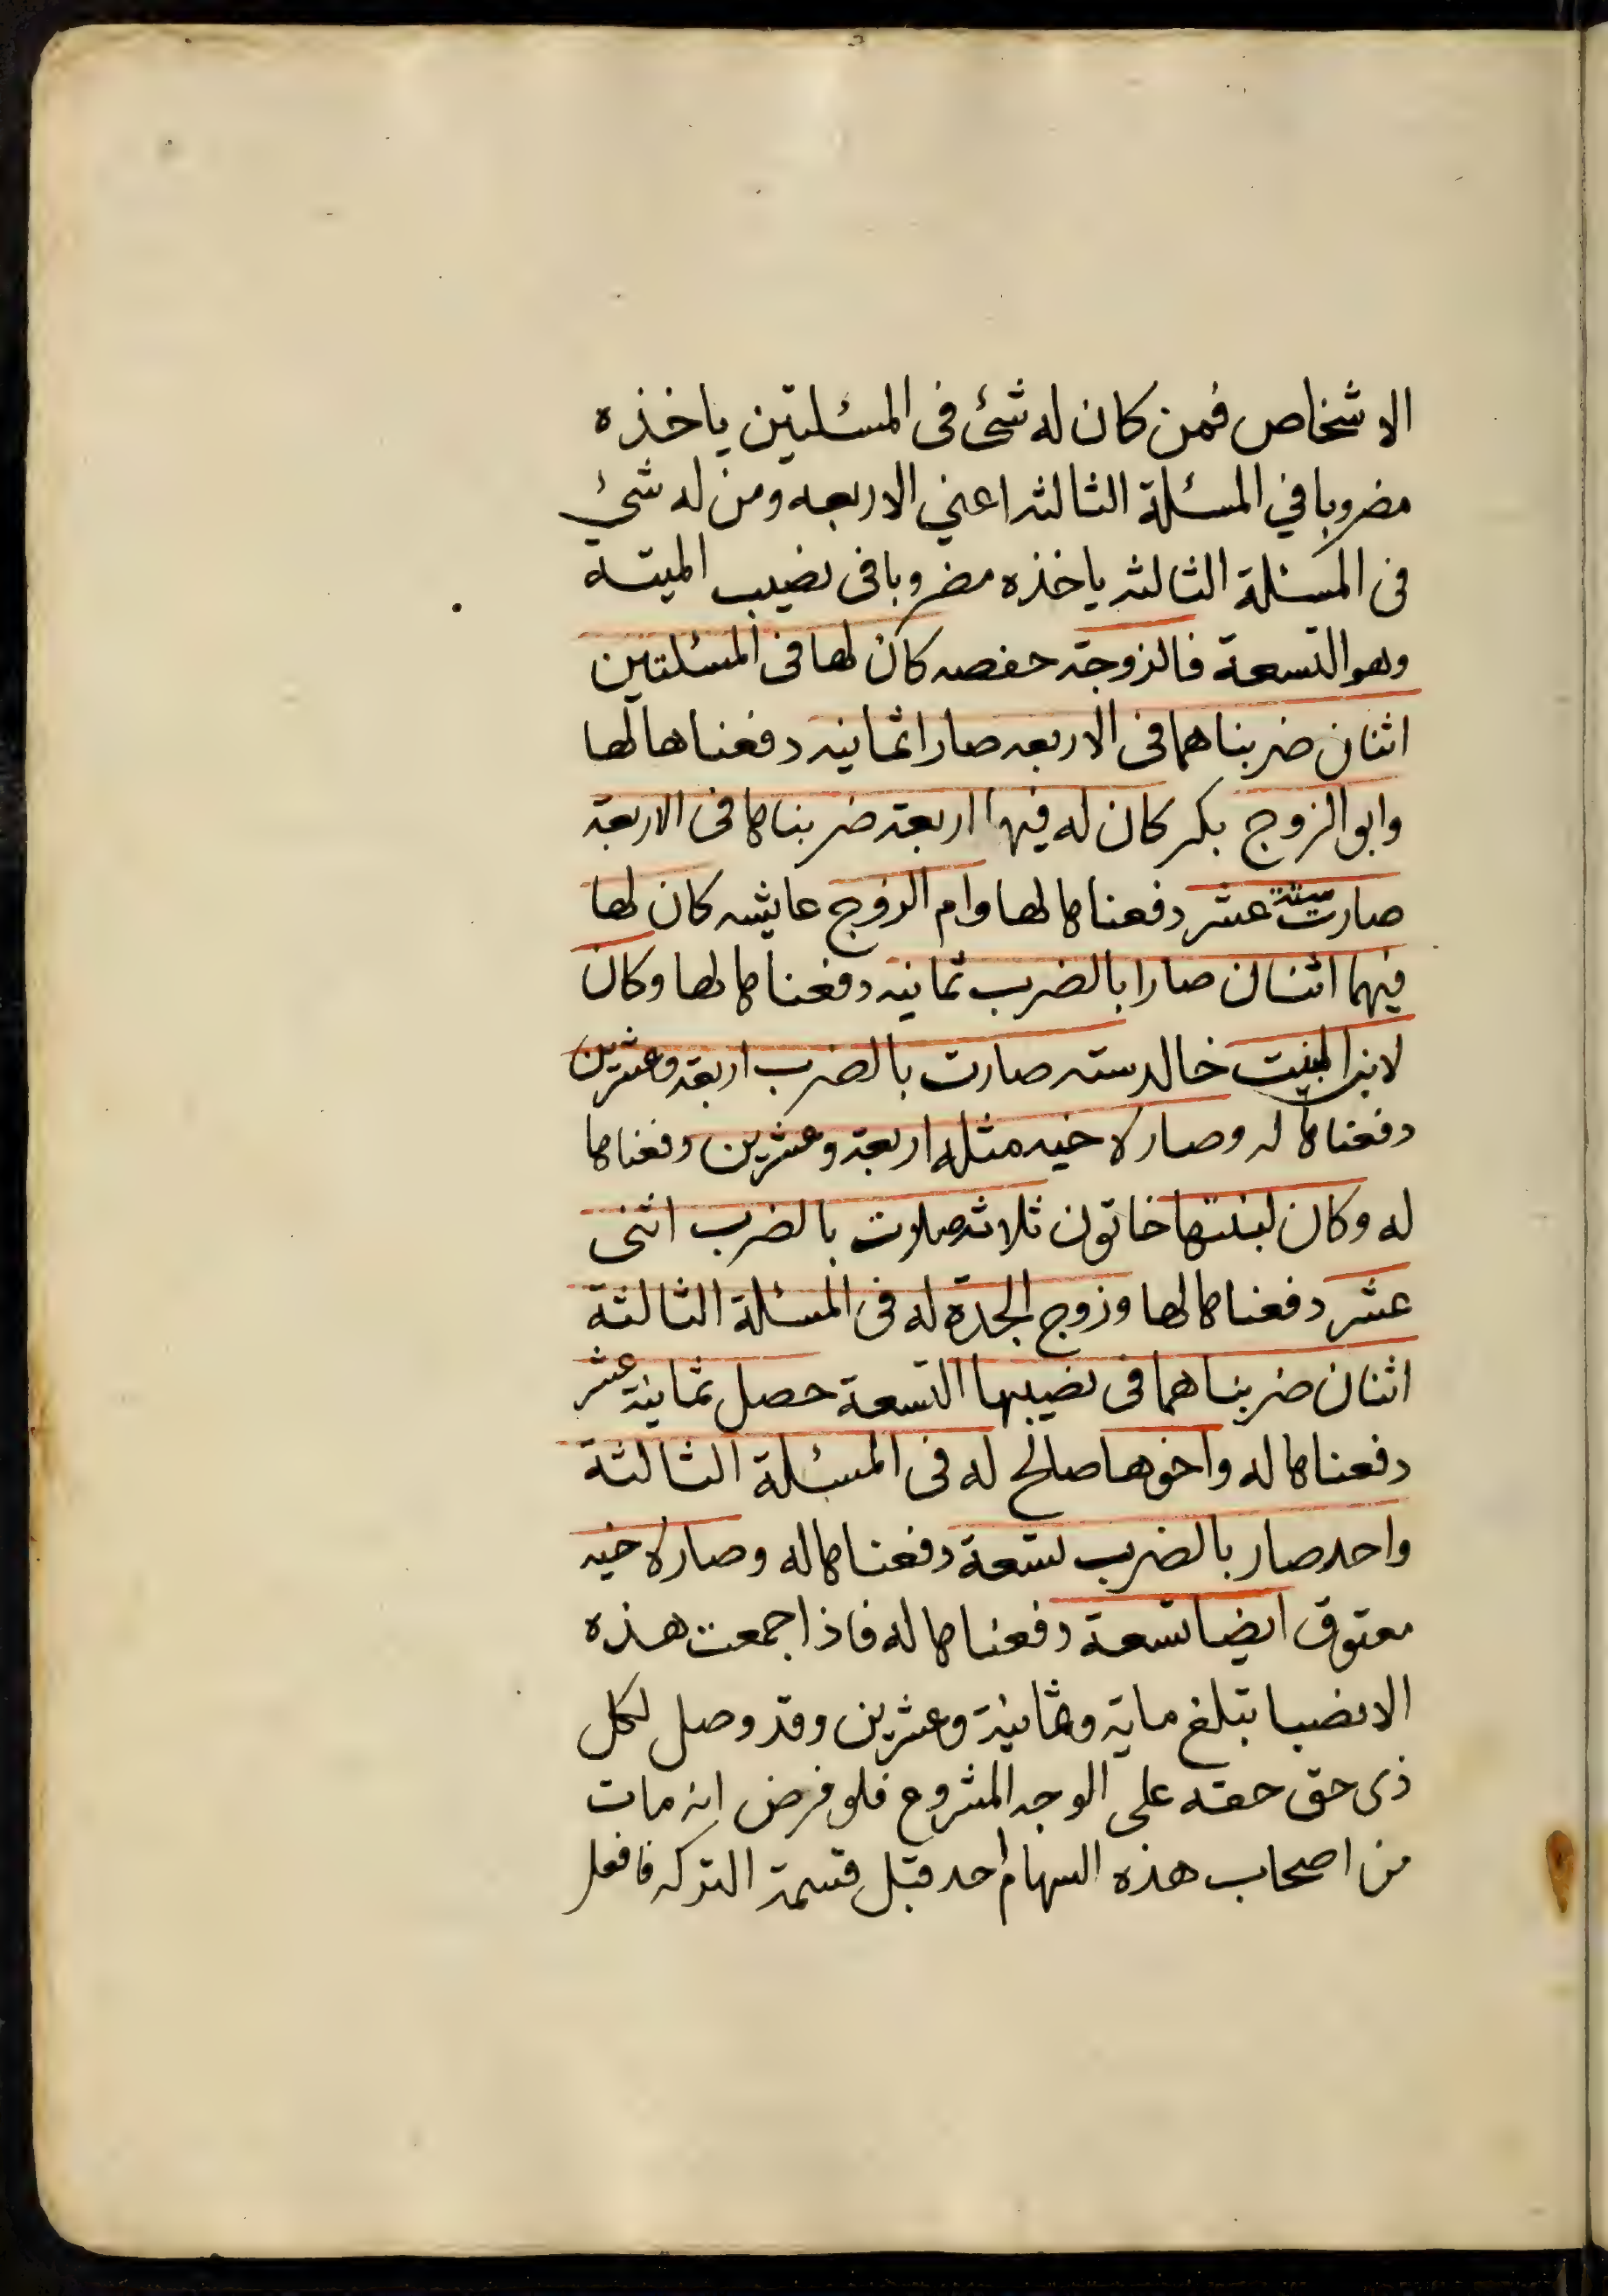 الاشخاص فمن كان له شئ فى المسئلتين ياخذه
مضروبا في المسئلة الثالثه اعني الاربعه ومن له شئ
فى المسئلة الثالثه ياخذه مضروبا فى نصيب الميتة
وهو التسعة فالزوجة حفصه كان لها فى المسئلتين
اثنان ضربناهما فى الاربعه صارا ثمانيه دفعناها لها
وابو الزوج بكر كان له فيهما اربعة ضربناها فى الاربعة
صارت ستة عشر دفعناها لها وام الزوج عايشه كان لها
فيهما اثنان صارا بالضرب ثمانيه دفعناها لها وكان
لابن البنت خالد سته صارت بالضرب اربعة وعشرين
دفعناها له وصار لاخيه مثله اربعة وعشرين دفعناها
له وكان لبنتها خاتون ثلاثه صارت بالضرب اثنى
عشر دفعناها لها وزوج الجدة له فى المسئلة الثالثة
اثنان ضربناهما فى نصيبها التسعة حصل ثمانية عشر
دفعناها له واخوها صالح له فى المسئلة الثالثة
واحد صار بالضرب تسعة دفعناها له وصار لاخيه
معتوق ايضا تسعة دفعناها له فاذا جمعت هذه
الانصبا تبلغ ماية وثمانية وعشرين وقد وصل لكل
ذى حق حقه على الوجه المشروع فلو فرض انه مات
من اصحاب هذه السهام احد قبل قسمة التركه فافعل